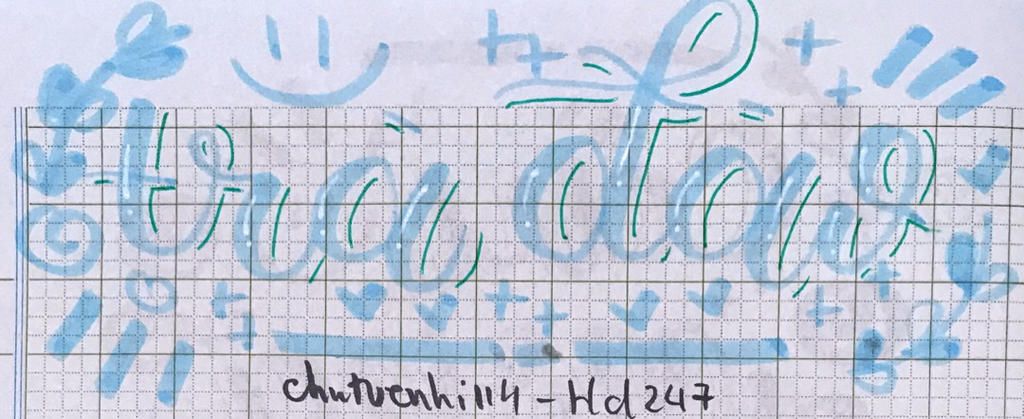 trà đào
chutuenhi114 - Hd247